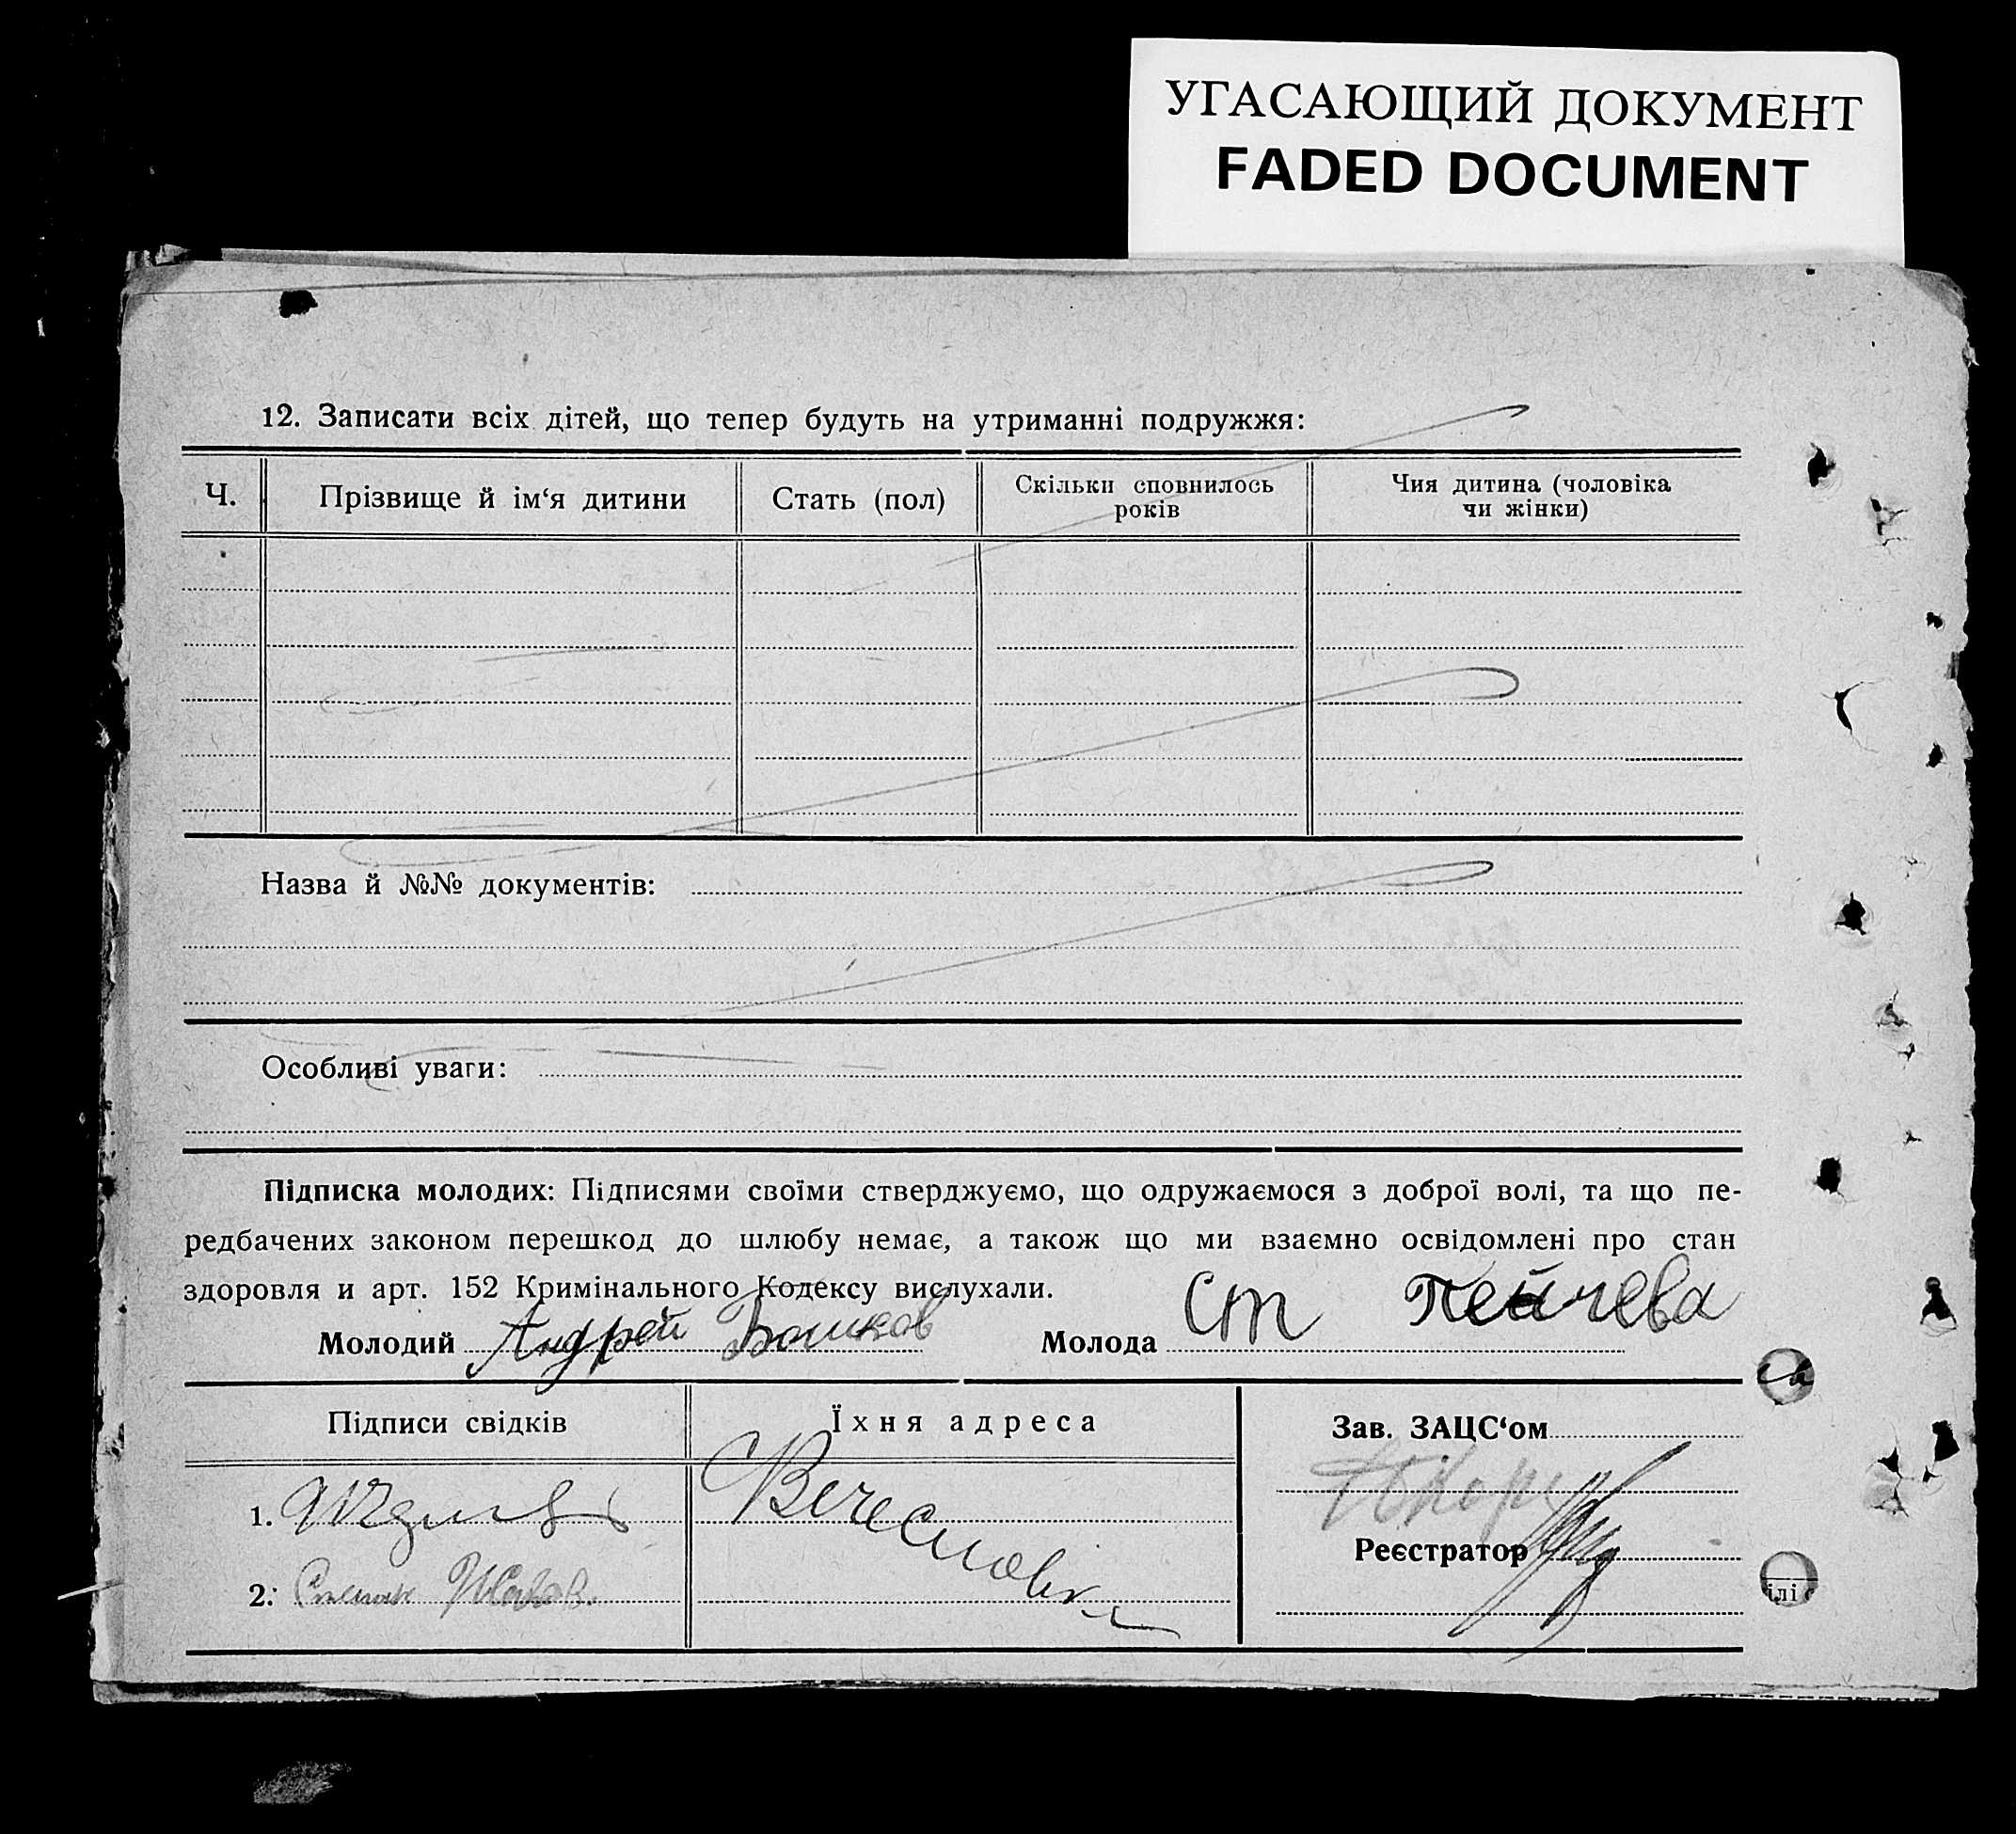 УГАСАЮЩИЙ ДОКУМЕНТ
FADED DOCUMENT
12. Записати всіх дітей, що тепер будуть на утриманні подружжя:
Ч.
Прізвище й ім‘я дитини
Стать (пол)
Скільки сповнилось
років
Чия дитина (чоловіка
чи жінки)
Назва й №№ документів:
Особливі уваги:
Підписка молодих: Підписями своїми стверджуємо, що одружаємося з доброї волі, та що пе-
редбачених законом перешкод до шлюбу немає, а також що ми взаємно освідомлені про стан
здоровля и арт. 152 Кримінального Кодексу вислухали.
Молодий Андрей Бошков Молода Ст Пейчева
Підписи свідків
Їхня адреса
Зав. ЗАЦС‘ом
1.
Реєстратор
2.
ілі